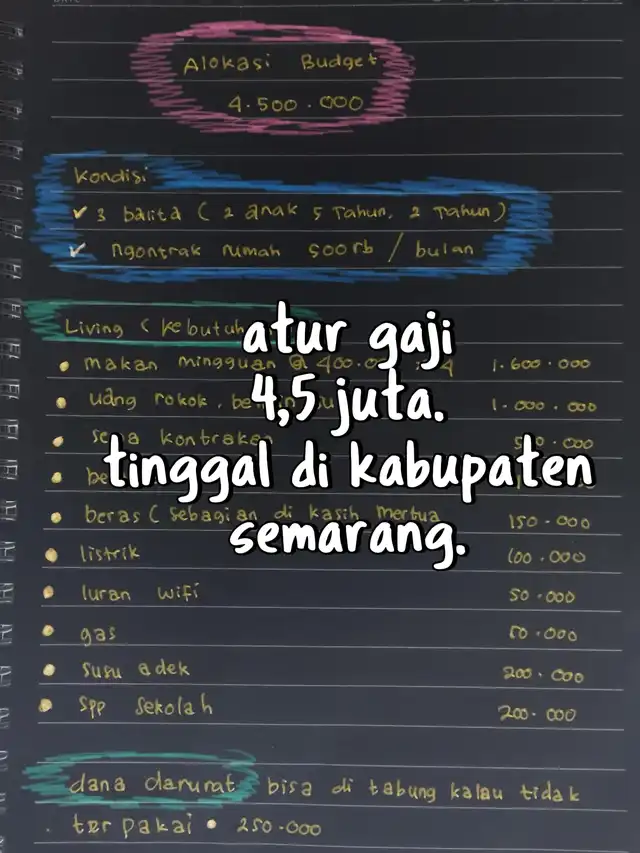 Alokasi Budget
4.500.000
Kondisi
✓ 3 balita (2 anak 5 Tahun, 2 Tahun)
✓ ngontrak rumah 500rb / bulan
Living (kebutuh
• makan mingguan @ 400.0 : 4 1.600.000
• uang rokok, 1.000.000
• sewa kontrakan 500.000
• be
• beras (sebagian di kasih mertua 150.000
• listrik 100.000
• Iuran wifi 50.000
• gas 50.000
• susu adek 200.000
• Spp sekolah 200.000
dana darurat bisa di tabung kalau tidak
terpakai • 250.000
atur gaji
4,5 juta.
tinggal di kabupaten
semarang.